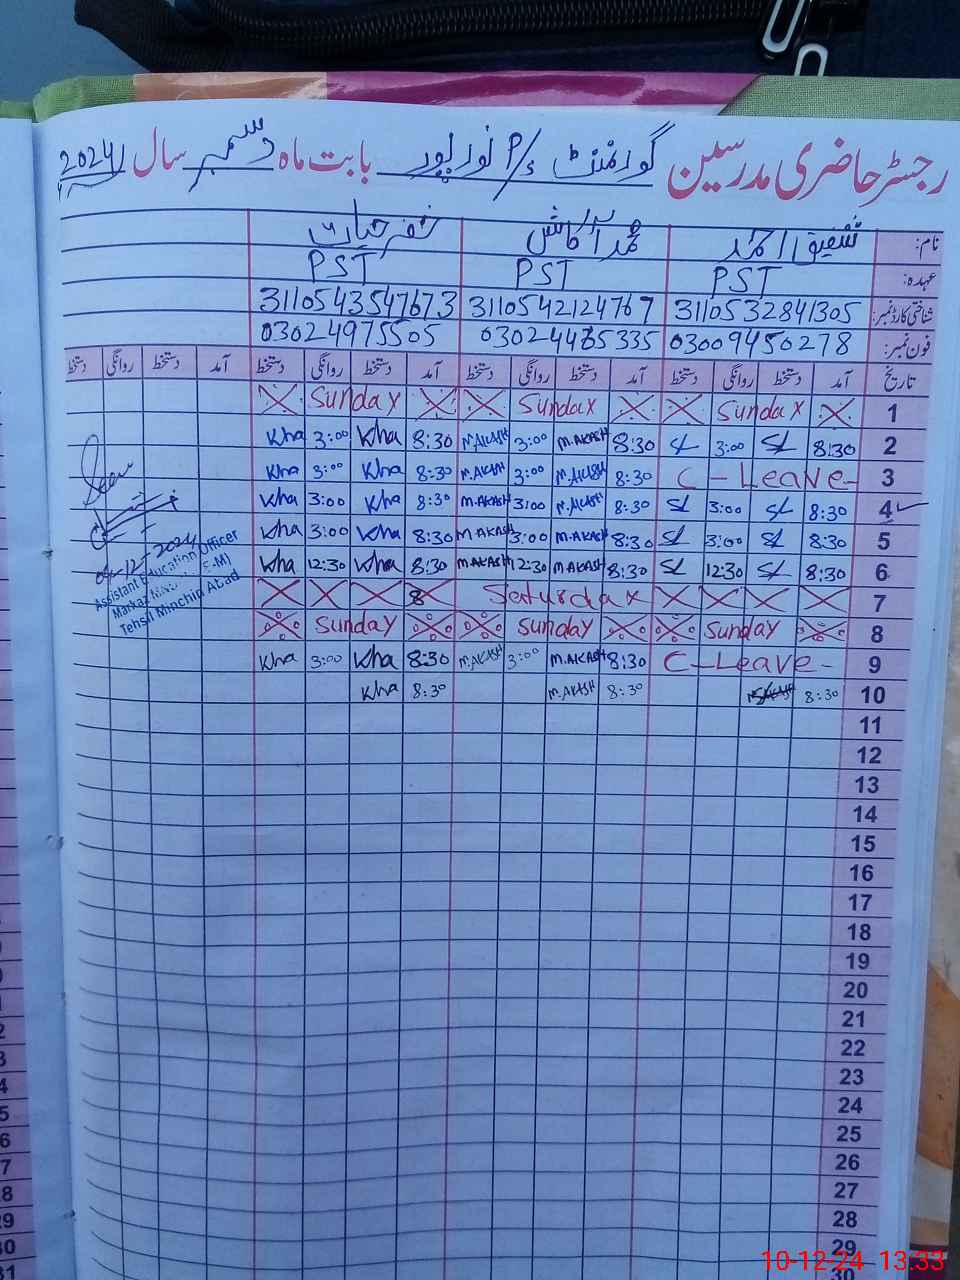 رجسٹر حاضری مدرسین گورنمنٹ P/s نورپور بابت ماہ دسمبر سال 2024ء
نام: شفیق احمد محمد آکاش خضر حیات
عہدہ: PST PST PST
شناختی کارڈ نمبر: 3110532841305 3110542124767 3110543547673
فون نمبر: 03009450278 03024485335 03024975505
تاریخ آمد دستخط روانگی دستخط آمد دستخط روانگی دستخط آمد دستخط روانگی دستخط آمد دستخط روانگی دستخط
1 Sunday Sunday Sunday
2 8:30 SL 3:00 SL 8:30 M.AKASH 3:00 M.AKASH 8:30 Kha 3:00 Kha
3 C-Leave- 8:30 M.AKASH 3:00 M.AKASH 8:30 Kha 3:00 Kha
4 8:30 SL 3:00 SL 8:30 M.AKASH 3:00 M.AKASH 8:30 Kha 3:00 Kha
5 8:30 SL 3:00 SL 8:30 M.AKASH 3:00 M.AKASH 8:30 Kha 3:00 Kha
6 8:30 SL 12:30 SL 8:30 M.AKASH 12:30 M.AKASH 8:30 Kha 12:30 Kha
7 Saturday 8
8 Sunday Sunday Sunday
9 C-Leave- 8:30 M.AKASH 3:00 M.AKASH 8:30 Kha 3:00 Kha
10 8:30 8:30 M.AKASH 8:30 Kha
04-12-2024
Assistant Education Officer
Markaz
Tehsil Minchin Abad
11
12
13
14
15
16
17
18
19
20
21
22
23
24
25
26
27
28
29
30
10-12-24 13:33